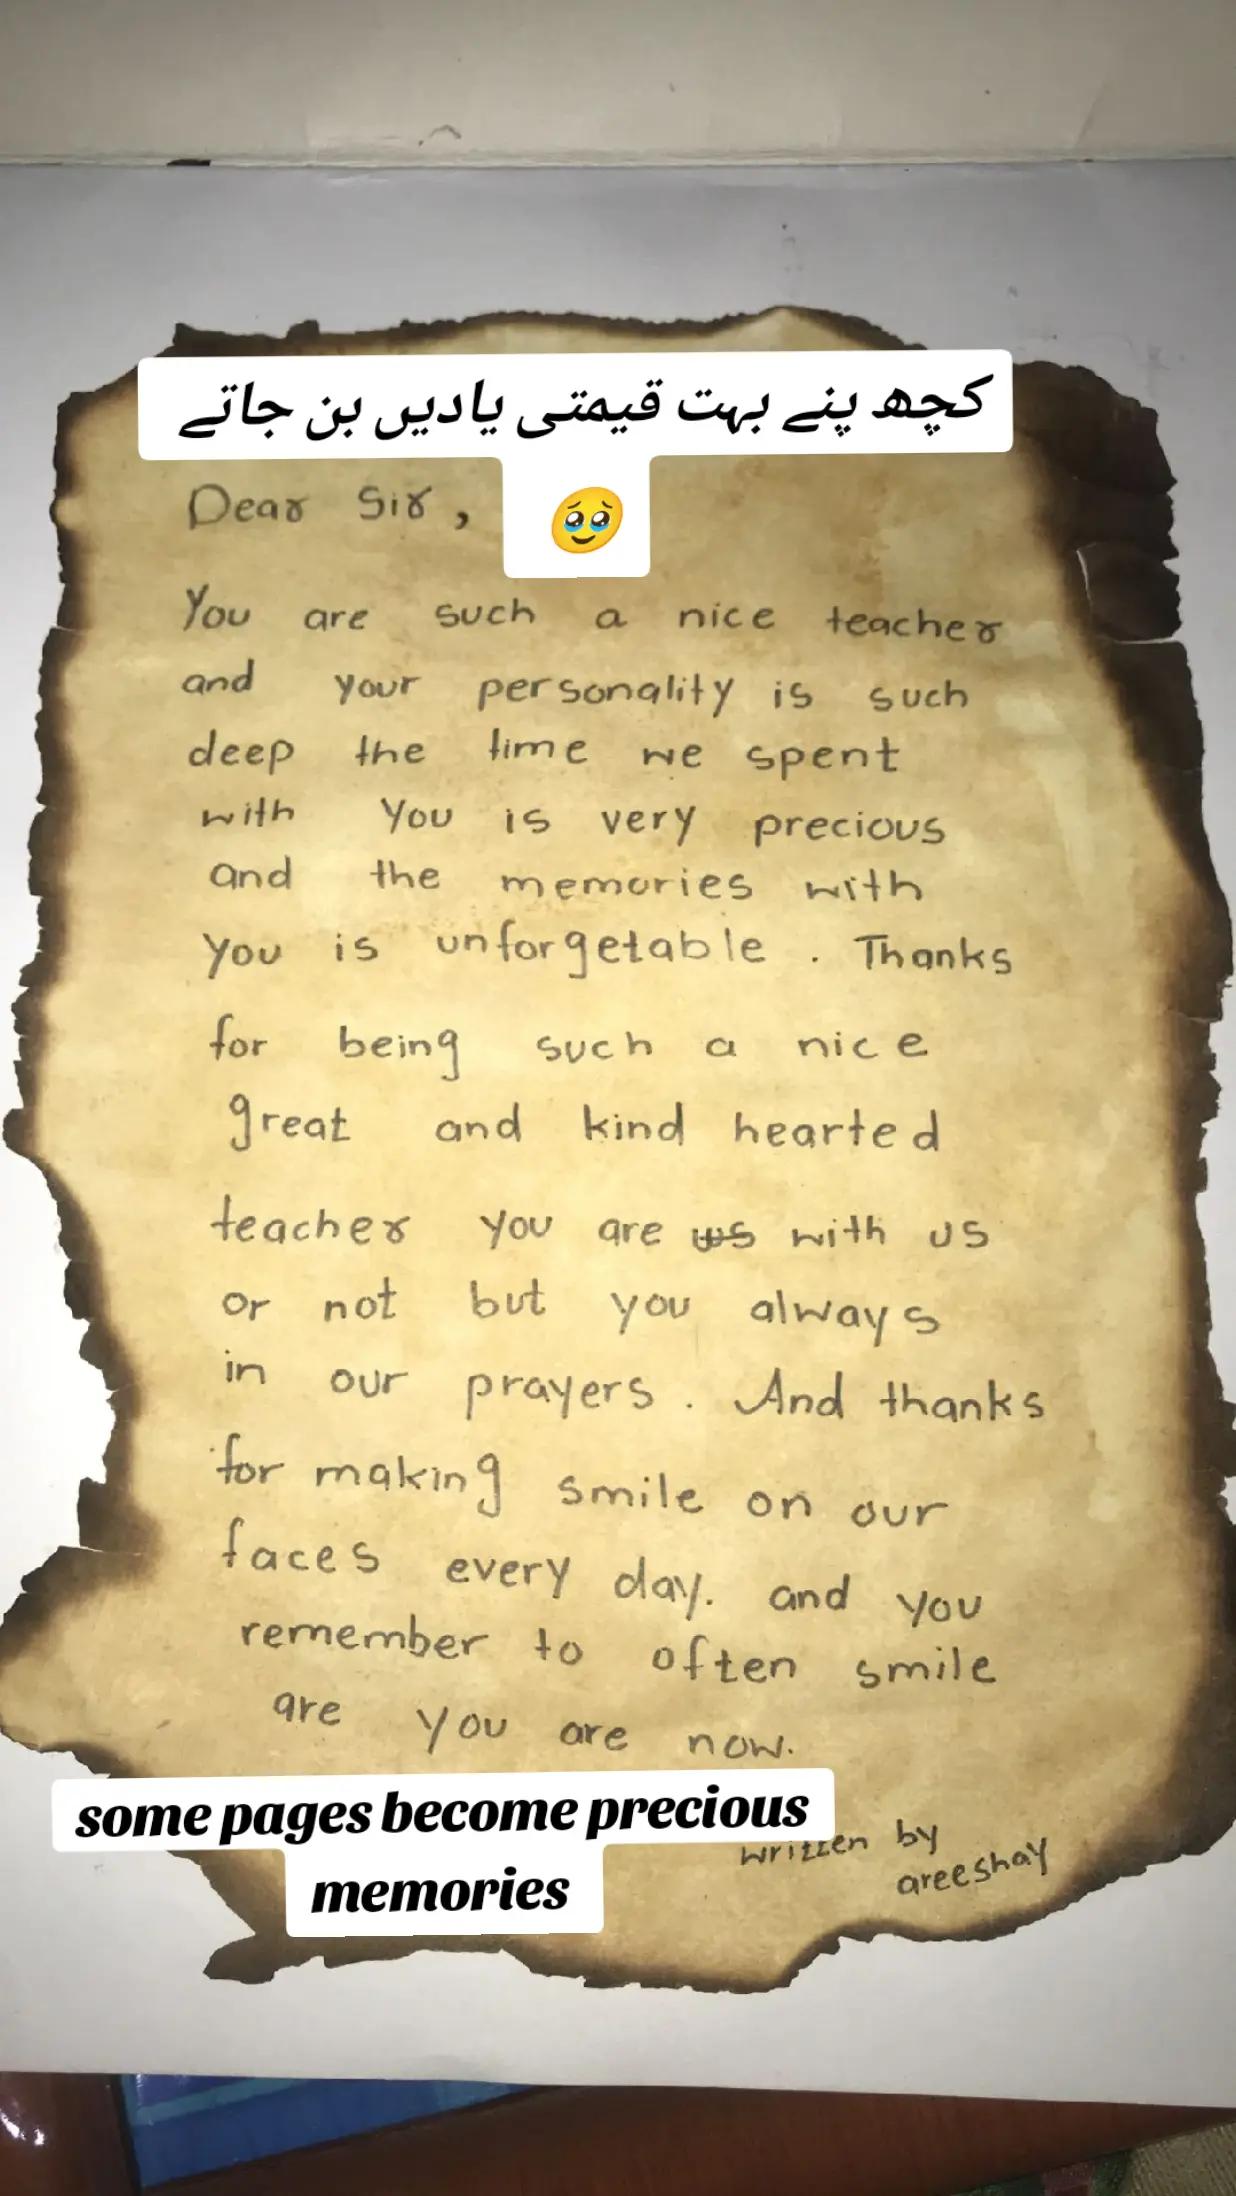 کچھ پنے بہت قیمتی یادیں بن جاتے
🥹
Dear Sir,
You are such a nice teacher
and your personality is such
deep the time we spent
with You is very precious
and the memories with
you is unforgetable. Thanks
for being such a nice
great and kind hearted
teacher you are us with us
or not but you always
in our prayers. And thanks
for making smile on our
faces every day. and you
remember to often smile
are you are now.
some pages become precious
memories
written by
areeshay